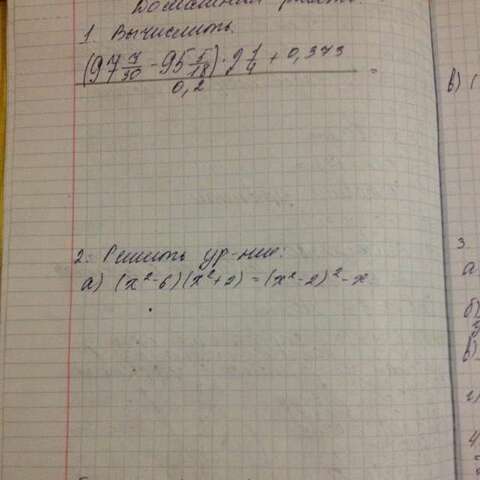 Домашняя работа.
1. Вычислить.
(97 7/30 - 95 5/18) · 2 1/4 + 0,373
0,2
=
в) (
2. Решить ур-ние:
а) (x²-6)(x²+2) = (x²-2)² - x
3
а
б)
в)
г)
4